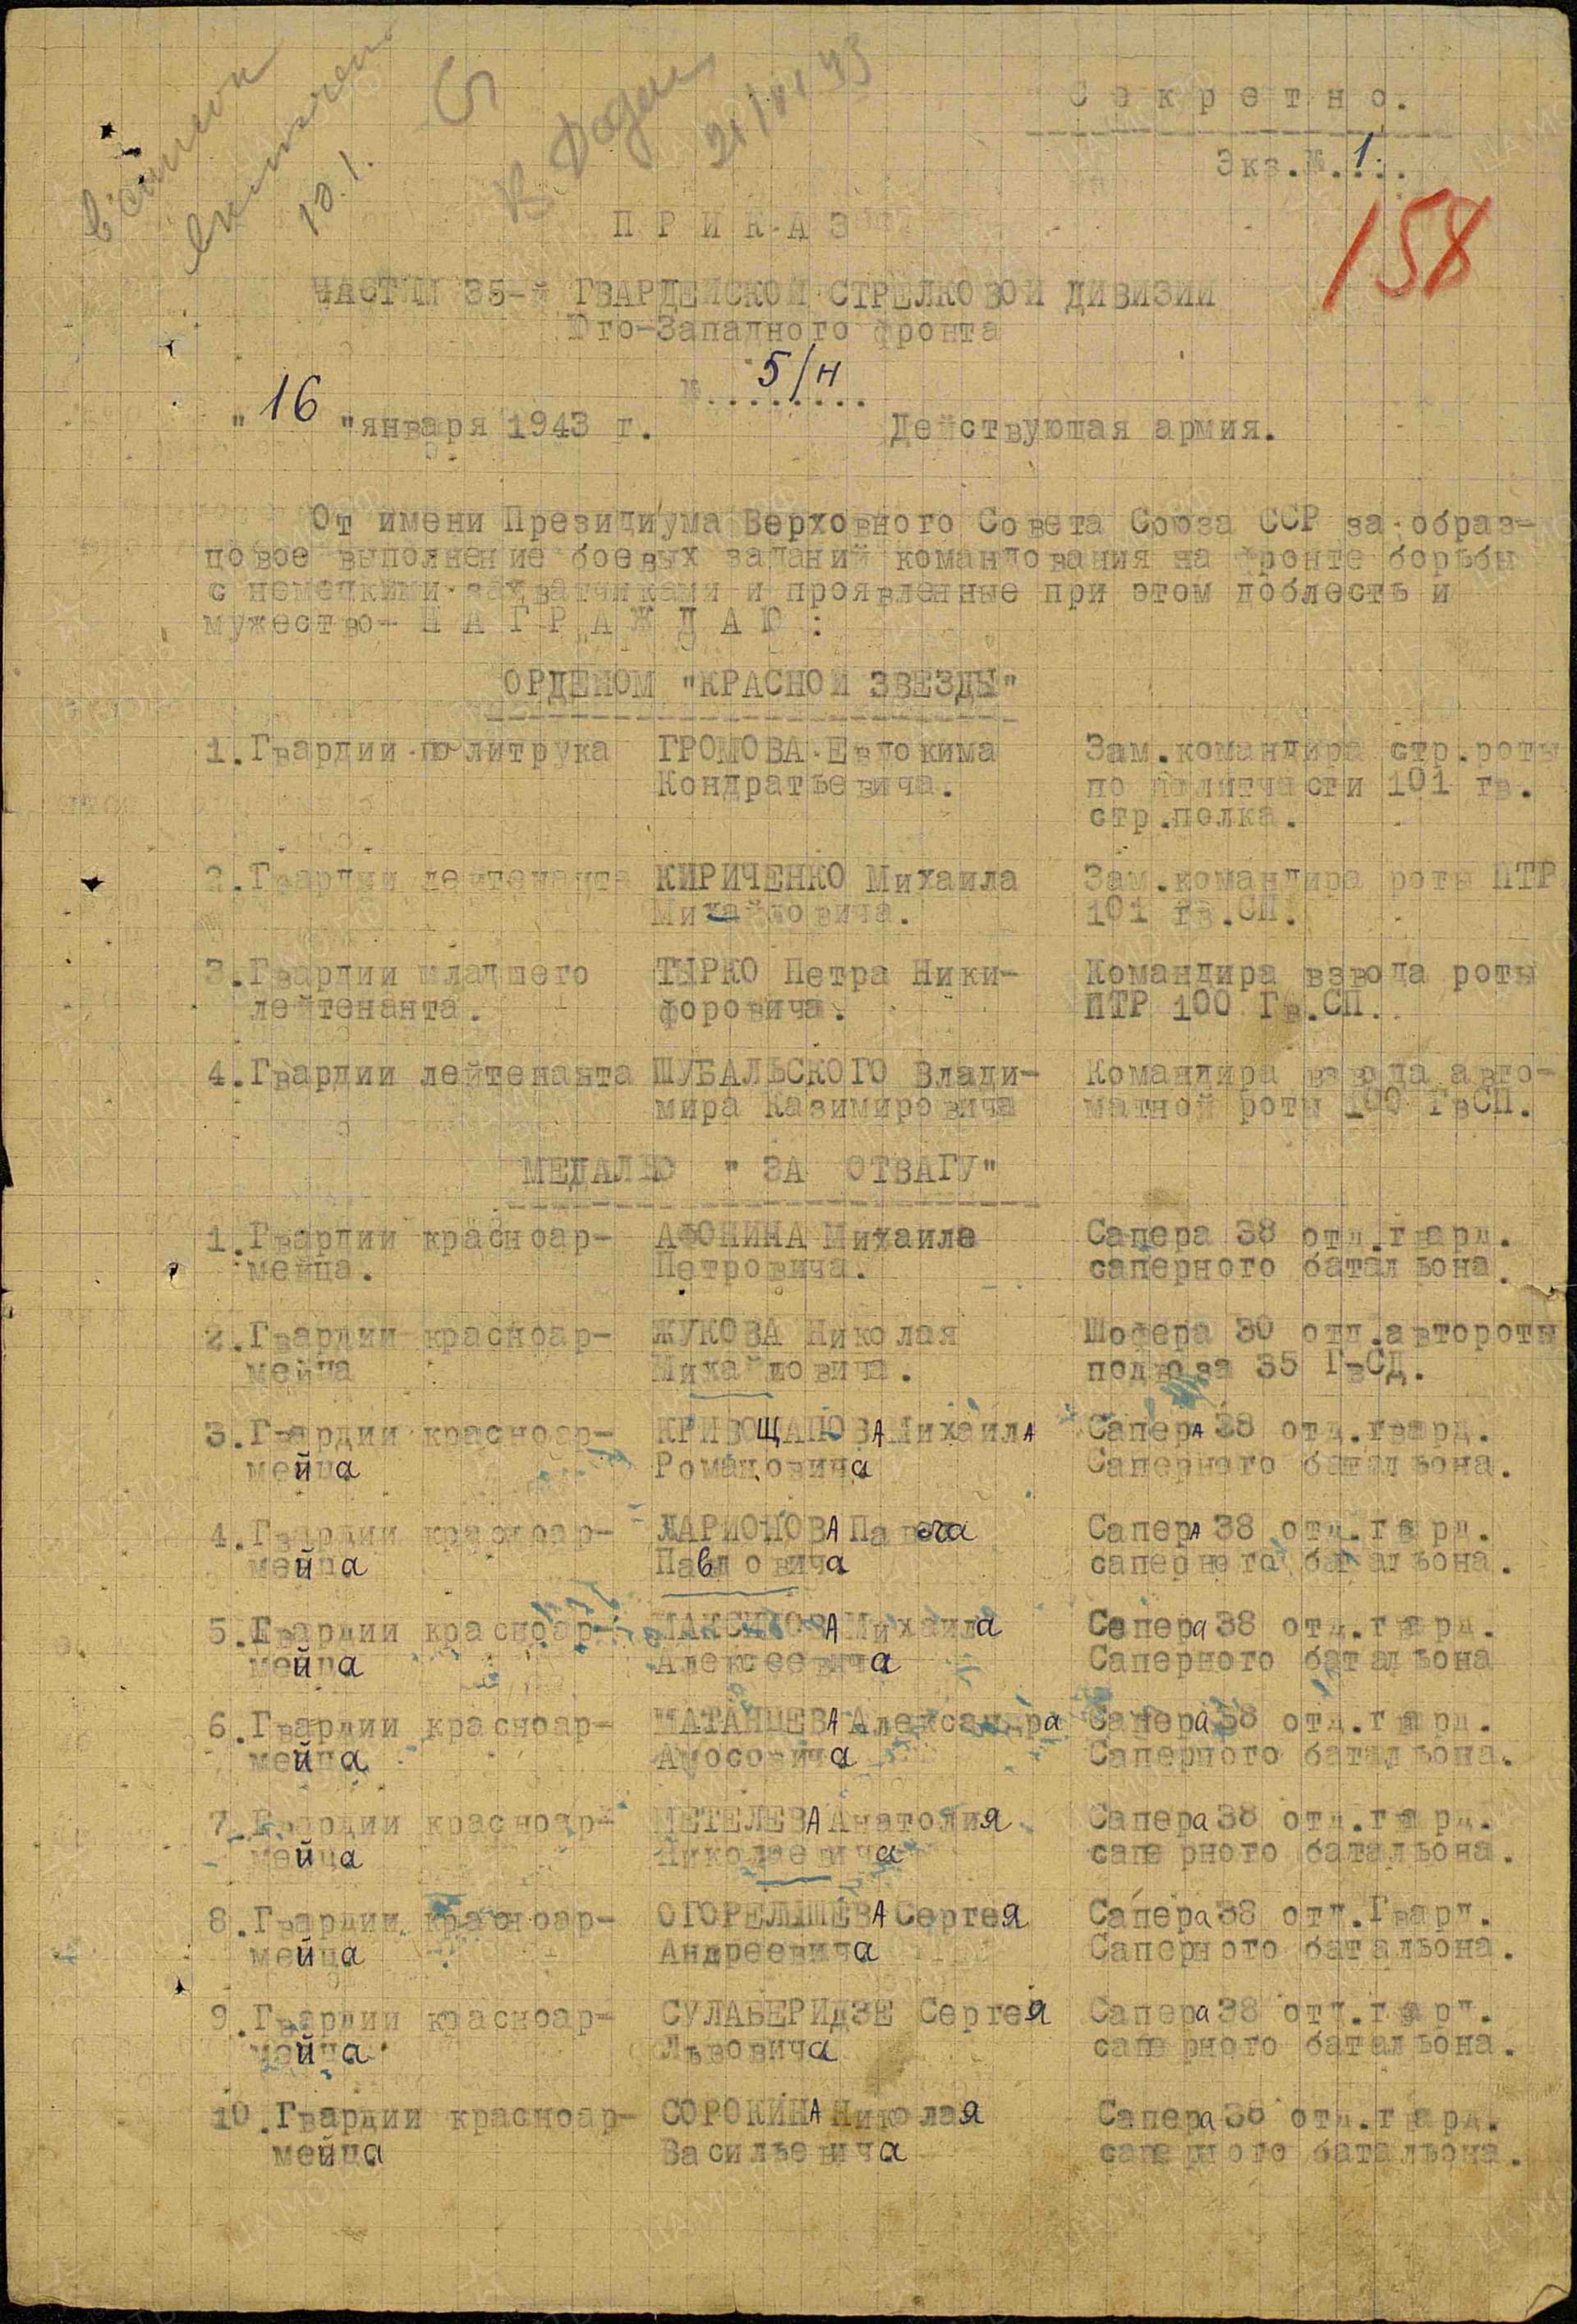 Секретно.
Экз.№.1...
158
21/VI 43
10.1.
ПРИКАЗ
ЧАСТЯМ 35-й ГВАРДЕЙСКОЙ СТРЕЛКОВОЙ ДИВИЗИИ
Юго-Западного фронта
№ 5/н
"16" января 1943 г. Действующая армия.
От имени Президиума Верховного Совета Союза ССР за образ-
цовое выполнение боевых заданий командования на фронте борьбы
с немецкими захватчиками и проявленные при этом доблесть и
мужество- НАГРАЖДАЮ:
ОРДЕНОМ "КРАСНОЙ ЗВЕЗДЫ"
1.Гвардии политрука ГРОМОВА Евдокима Зам.командира стр.роты
Кондратьевича. по политчасти 101 гв.
стр.полка.
2.Гвардии лейтенанта КИРИЧЕНКО Михаила Зам.командира роты ПТР
Михайловича. 101 гв.СП.
3.Гвардии младшего ТЫРКО Петра Ники- Командира взвода роты
лейтенанта. форовича. ПТР 100 Гв.СП.
4.Гвардии лейтенанта ШУБАЛЬСКОГО Влади- Командира взвода авто-
мира Казимировича матной роты 100 ГвСП.
МЕДАЛЬЮ "ЗА ОТВАГУ"
1.Гвардии красноар- АФОНИНА Михаила Сапера 38 отд.гвард.
мейца. Петровича. саперного батальона.
2.Гвардии красноар- ЖУКОВА Николая Шофера 30 отд.автороты
мейца Михайловича. подвоза 35 ГвСД.
3.Гвардии красноар- КРИВОЩАПОВА Михаила Сапера 38 отд.гвард.
мейца Романовича Саперного батальона.
4.Гвардии красноар- ЛАРИОНОВА Павела Сапера 38 отд.гвард.
мейца Павловича саперного батальона.
5.Гвардии красноар- МАКСИМОВА Михаила Сепера 38 отд.гвард.
мейца Алексеевича Саперного батальона
6.Гвардии красноар- МАТАНЦЕВА Александра Сапера 38 отд.гвард.
мейца Амосовича Саперного батальона.
7.Гвардии красноар- МЕТЕЛЕВА Анатолия Сапера 38 отд.гвард.
мейца Николаевича саперного батальона.
8.Гвардии красноар- ОГОРЕЛЫШЕВА Сергея Сапера 38 отд.Гвард.
мейца Андреевича Саперного батальона.
9.Гвардии красноар- СУЛАБЕРИДЗЕ Сергея Сапера 38 отд.гвард.
мейца Львовича саперного батальона.
10.Гвардии красноар- СОРОКИНА Николая Сапера 38 отд.гвард.
мейца Васильевича саперного батальона.